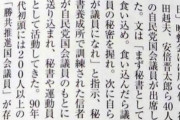 田赳夫、安倍晋太郎ら40人
の自民党国会議員が出席し
た。文は「まず秘書として
食い込め。食い込んだら議
員の秘密を握れ。次に自ら
が議員になれ」と指示、秘
書養成所で訓練された信者
が自民党国会議員の
送り込まれ、秘書や運動員
として活動してきた。90年
代初頭には200人以上の
「勝共推進国会議員」が存